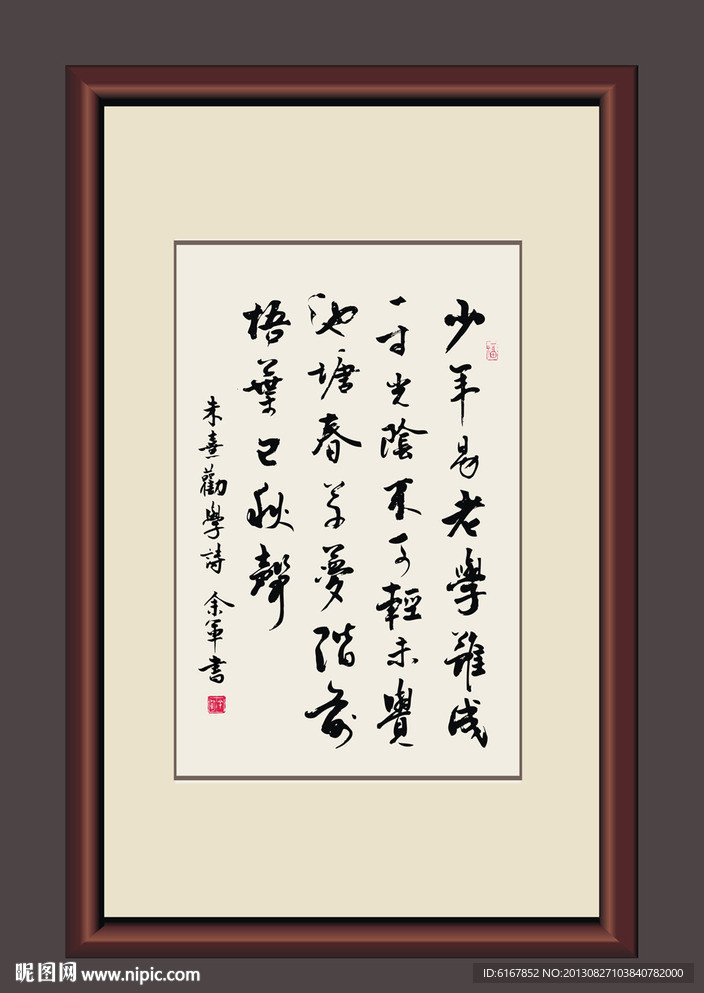 少年易老學難成
一寸光陰不可輕未覺
池塘春草夢階前
梧葉已秋聲
朱熹勸學詩 余軍書
昵图网 www.nipic.com
ID:6167852 NO:20130827103840782000